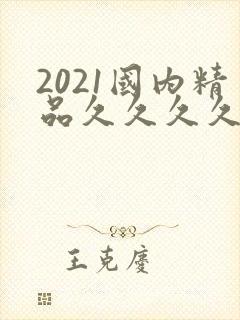 2021國內精
品久久久久
王克慶